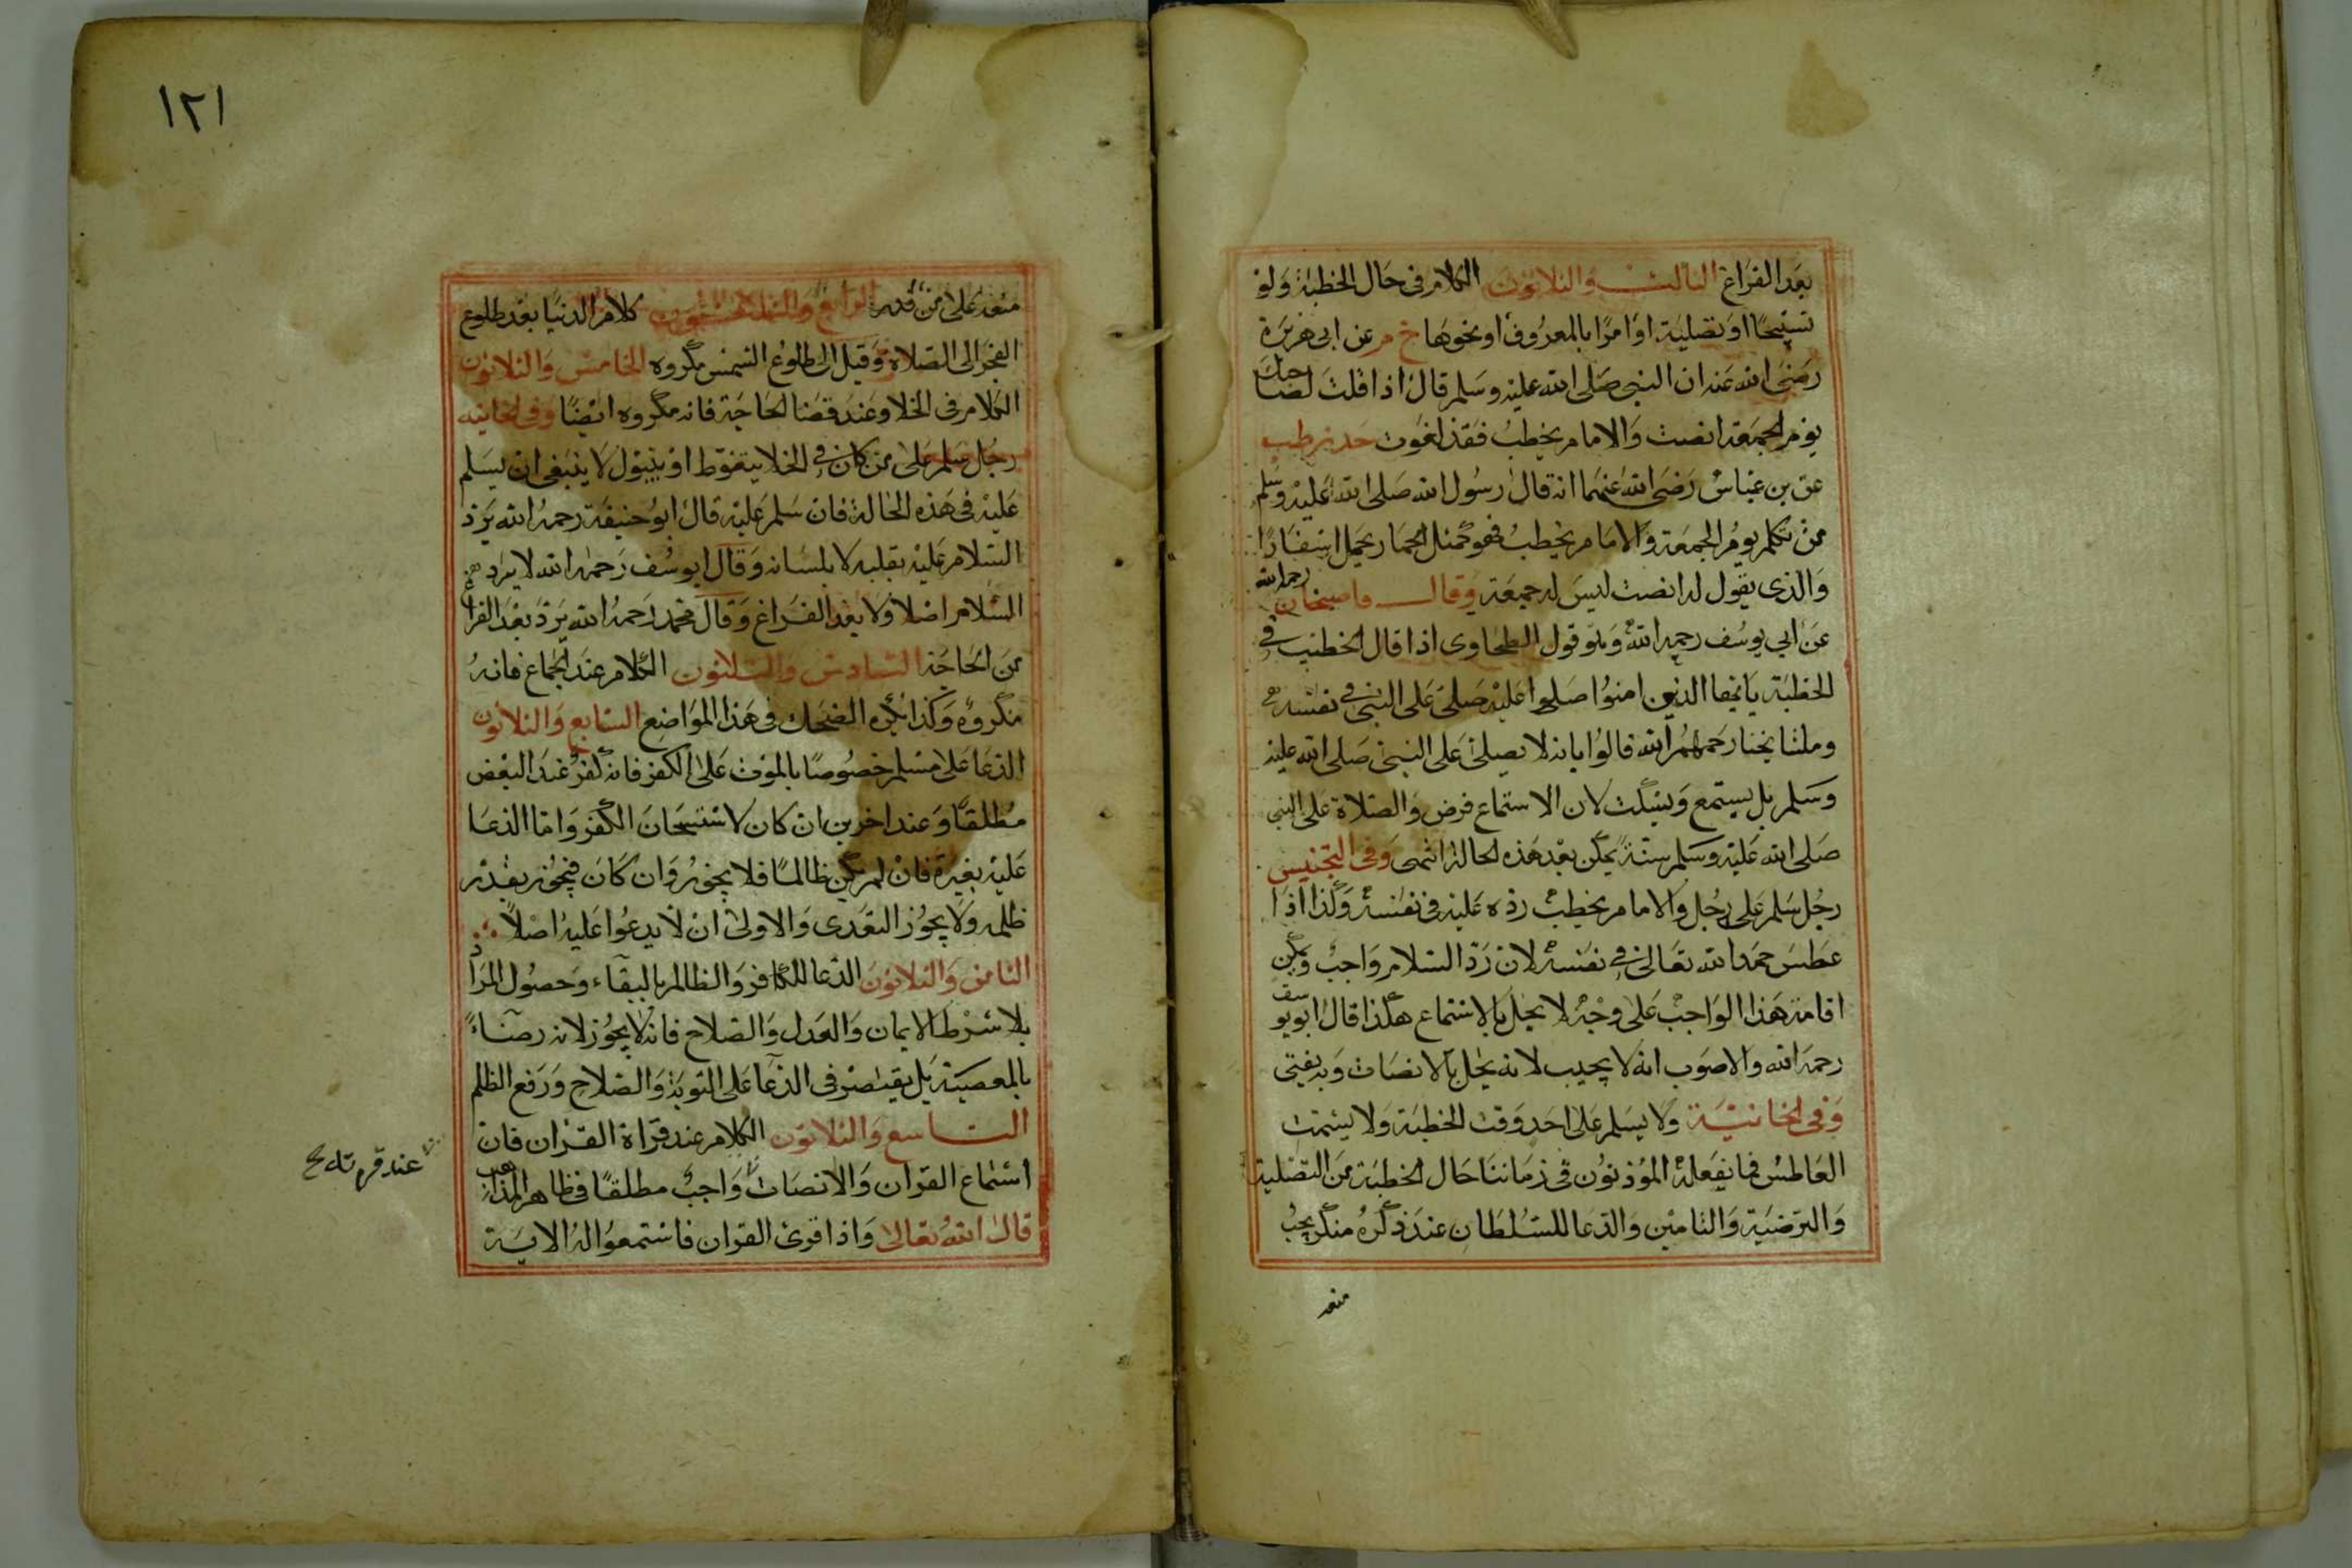 بعد الفراغ الثالث والثلاثون الكلام في حال الخطبة ولو
تسبيحا او تصلية او امرا بالمعروف او نحوها خ م عن ابي هريرة
رضي الله عنه ان النبي صلى الله عليه وسلم قال اذا قلت لصاحبك
يوم الجمعة انصت والامام يخطب فقد لغوت حد بز طب
عن بن عباس رضي الله عنهما انه قال رسول الله صلى الله عليه وسلم
من تكلم يوم الجمعة والامام يخطب فهو كمثل الحمار يحمل اسفارا
والذى يقول له انصت ليس له جمعة وقال قاضيخان رحمه الله
عن ابي يوسف رحمه الله وهو قول الطحاوى اذا قال الخطيب في
الخطبة يا ايها الذين امنوا صلوا عليه صلى على النبي في نفسه
ومشايخنا رحمهم الله قالوا بانه لا يصلى على النبي صلى الله عليه
وسلم بل يستمع ويسكت لان الاستماع فرض والصلاة على النبى
صلى الله عليه وسلم سنة يمكن بعد هذه الحالة انتهى وفى التجنيس
رجل سلم على رجل والامام يخطب رده عليه في نفسه وكذا اذا
عطس حمد الله تعالى في نفسه لان رد السلام واجب ويمكن
اقامة هذا الواجب على وجه لا يخل بالاستماع هكذا قال ابو يوسف
رحمه الله والاصوب انه لا يجيب لانه يخل بالانصات وبه يفتى
وفى الخانية ولا يسلم على احد وقت الخطبة ولا يشمت
العاطس فما يفعله المؤذنون في زماننا حال الخطبة من التصلية
والترضية والتامين والدعا للسلطان عند ذكره منكر يجب
منعه
١٢١
منعه على من قدر الرابع والثلاثون كلام الدنيا بعد طلوع
الفجر الى الصلاة وقيل الى طلوع الشمس مكروه الخامس والثلاثون
الكلام في الخلا وعند قضا الحاجة فانه مكروه ايضا وفى الخانيه
رجل سلم على من كان في الخلا يتغوط او يبول لا ينبغى ان يسلم
عليه فى هذه الحالة فان سلم عليه قال ابو حنيفة رحمه الله يرد
السلام عليه بقلبه لا بلسانه وقال ابو يوسف رحمه الله لا يرد
السلام اصلا ولا بعد الفراغ وقال محمد رحمه الله يرد بعد الفراغ
من الحاجة السادس والثلاثون الكلام عند الجماع فانه
مكروه وكذا يكره الضحك في هذا المواضع السابع والثلاثون
الدعا على مسلم خصوصا بالموت على الكفر فانه كفر عند البعض
مطلقا وعند اخرين ان كان لاستحسان الكفر واما الدعا
عليه بغيره فان لم يكن ظالما فلا يجوز وان كان فيجوز بقدر
ظلمه ولا يجوز التعدى والاولى ان لا يدعوا عليه اصلا
الثامن والثلاثون الدعا للكافر والظالم بالبقاء وحصول المراد
بلا شرط الايمان والعدل والصلاح فانه لا يجوز لانه رضاء
بالمعصية بل يقتصر فى الدعا على التوبة والصلاح ورفع الظلم
التاسع والثلاثون الكلام عند قراة القران فان
استماع القران والانصات واجب مطلقا في ظاهر المذهب
قال الله تعالى واذا قرئ القران فاستمعوا له الاية